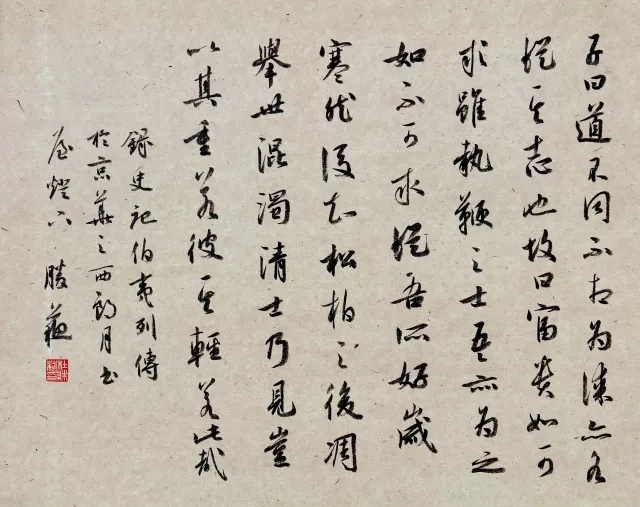 子曰道不同不相为謀亦各
從其志也故曰富貴如可
求雖執鞭之士吾亦为之
如不可求從吾所好歲
寒然後知松柏之後凋
舉世混濁清士乃見豈
以其重若彼其輕若此哉
錄史記伯夷列傳
於京華之西朗月书
屋燈下勝